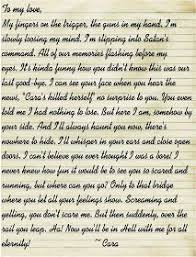 To my love,
My fingers on the trigger, the guns in my hand, I'm
slowly loosing my mind. I'm slipping into Satan's
command. All of our memories flashing before my
eyes. It's kinda funny how you didn't know this was our
last good-bye. I can see your face when you hear the
news, "Cara's killed herself" no surprise to you. You even
told me I had nothing to lose. But here I am, somehow by
your side. And I'll always haunt you now, there's
nowhere to hide. I'll whisper in your ears and close open
doors. I can't believe you ever thought I was a bore! I
never knew how fun it would be to see you so scared and
running, but where can you go? Only to that bridge
where you let all your feelings show. Screaming and
yelling, you don't scare me. But then suddenly, over the
rail you leap. Ha! Now you'll be in Hell with me for all
eternity!
~ Cara